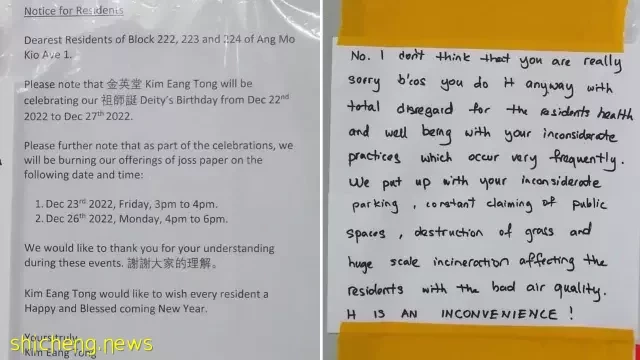 Notice for Residents
Dearest Residents of Block 222, 223 and 224 of Ang Mo
Kio Ave 1.
Please note that 金英堂 Kim Eang Tong will be
celebrating our 祖師誕 Deity's Birthday from Dec 22nd
2022 to Dec 27th 2022.
Please further note that as part of the celebrations, we
will be burning our offerings of joss paper on the
following date and time:
1. Dec 23rd 2022, Friday, 3pm to 4pm.
2. Dec 26th 2022, Monday, 4pm to 6pm.
We would like to thank you for your understanding
during these events. 謝謝大家的理解。
Kim Eang Tong would like to wish every resident a
Happy and Blessed coming New Year.
Yours truly
Kim Eang Tong
shicheng.news
No. I don't think that you are really
sorry b'cos you do it anyway with
total disregard for the residents health
and well being with your inconsiderate
practices which occur very frequently.
We put up with your inconsiderate
parking, constant claiming of public
spaces, destruction of grass and
huge scale incineration affecting the
residents with the bad air quality.
It IS AN INCONVENIENCE!